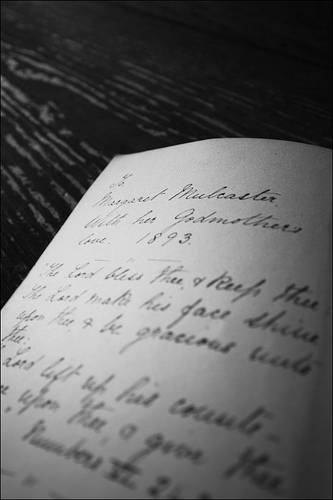 To
Margaret Mulcaster
With her Godmothers
love. 1893.
The Lord bless thee, & keep thee
The Lord make his face shine
upon thee & be gracious unto
thee:
Lord lift up his counte-
upon thee, & give thee
Numbers